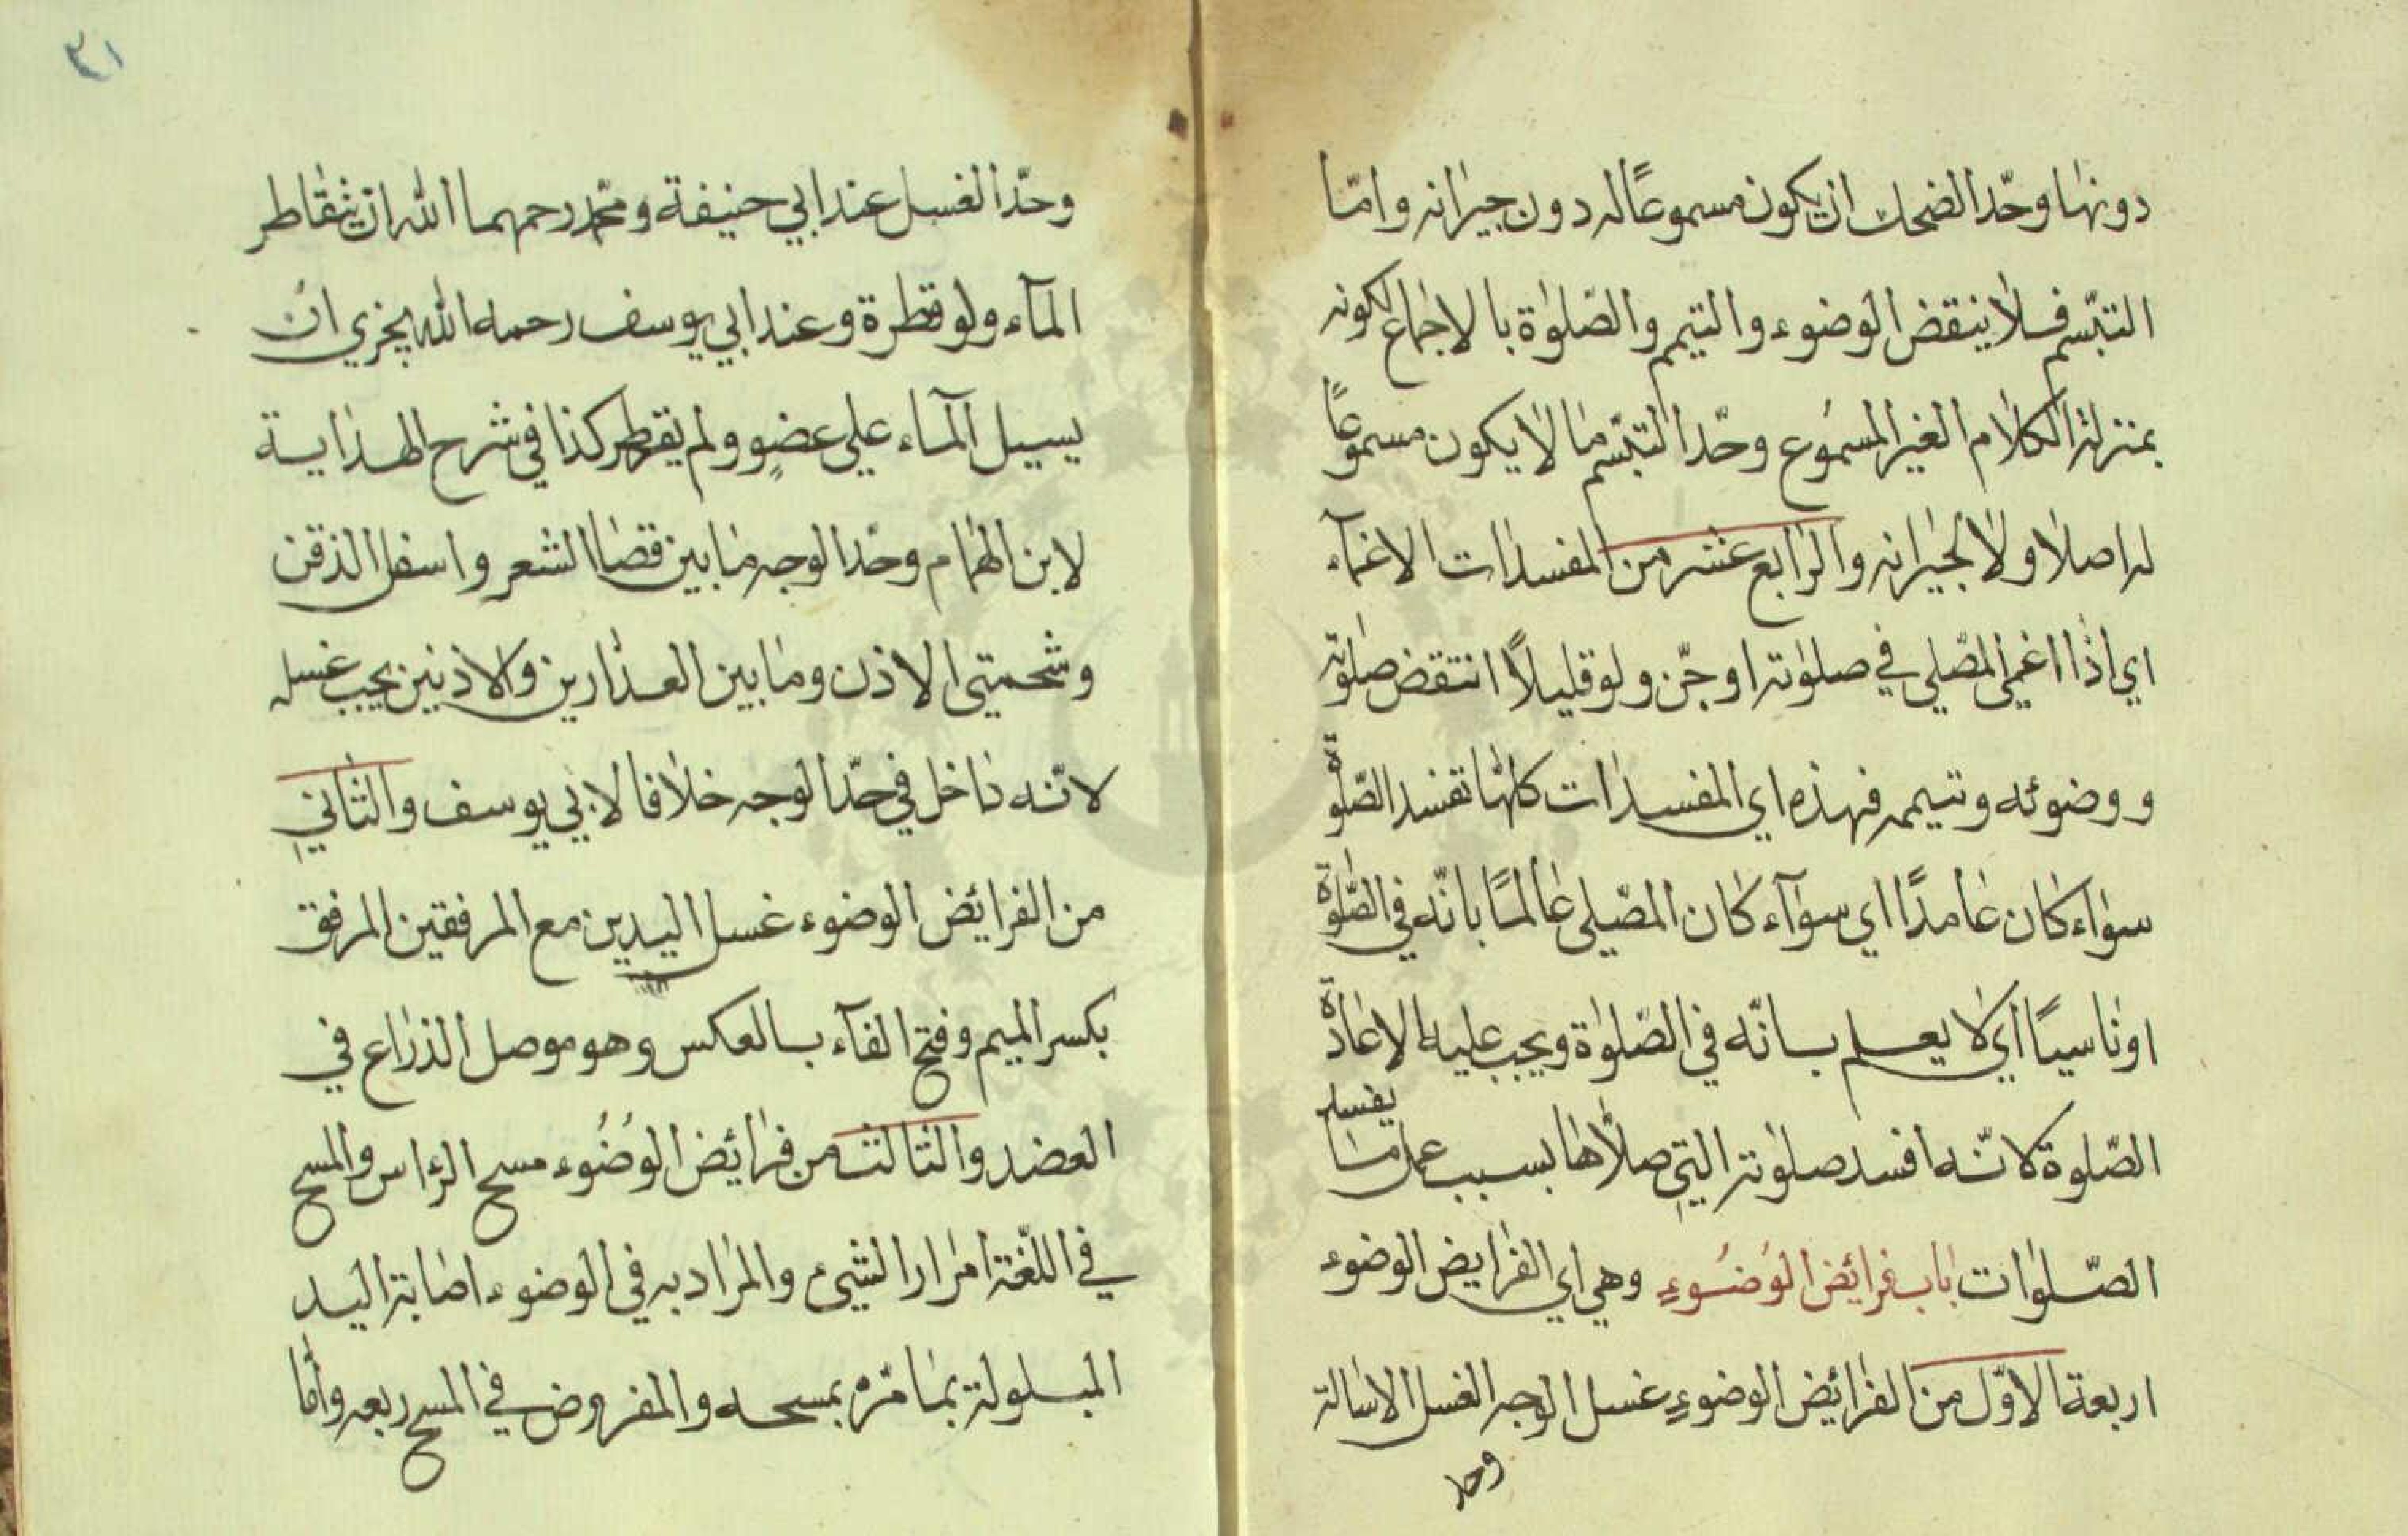 دونها وحدّ الضحك ان يكون مسموعًا له دون جيرانه وامّا
التبسّم فلا ينقض الوضوء والتيمم والصّلوٰة بالاجماع لكونه
بمنزلة الكلام الغير المسموع وحدّ التبسّم ما لا يكون مسموعًا
له اصلا ولا لجيرانه والرابع عشر من المفسدات الاغمآء
اي اذا اغمي المصلّي في صلوٰته او جنّ ولو قليلاً انتقض صلوٰته
ووضوئه وتيممه فهذه اي المفسدات كلّها تفسد الصّلوٰة
سواء كان عامدًا اي سوآء كان المصلّي عالمًا بانّه في الصّلوٰة
او ناسيًا اي لا يعلم بانّه في الصّلوٰة ويجب عليه الاعادة
الصّلوة كانّه افسد صلوٰته التي صلّاها بسبب عمل ما يفسد
الصّلوٰات باب فرائض الوُضُوءِ وهي اي الفرايض الوضوء
اربعة الاوّل من الفرائض الوضوءِ غسل الوجه الغسل الاسالة
وحد
٣١
وحدّ الغسل عند ابي حنيفة ومحمّد رحمهما الله ان يتقاطر
المآء ولو قطرة وعند ابي يوسف رحمه الله يجزي ان
يسيل المآء علي عضوٍ ولم يقطر كذا في شرح الهداية
لابن الهمام وحدّ الوجه ما بين قصاا لشعر واسفل الذقن
وشحمتي الاذن وما بين العذارين والاذنين يجب غسله
لانّه داخل في حدّ الوجه خلافا لابي يوسف والثاني
من الفرائض الوضوء غسل اليدين مع المرفقين المرفق
بكسر الميم وفتح الفآء بالعكس وهو موصل الذراع في
العضد والثالث من فرائض الوُضُوء مسح الراس والمسح
في اللغة امرار الشيء والمراد به في الوضوء اصابة اليد
المبلولة بما مرّه بمسحه والمفروض في المسح ربعه وامّا